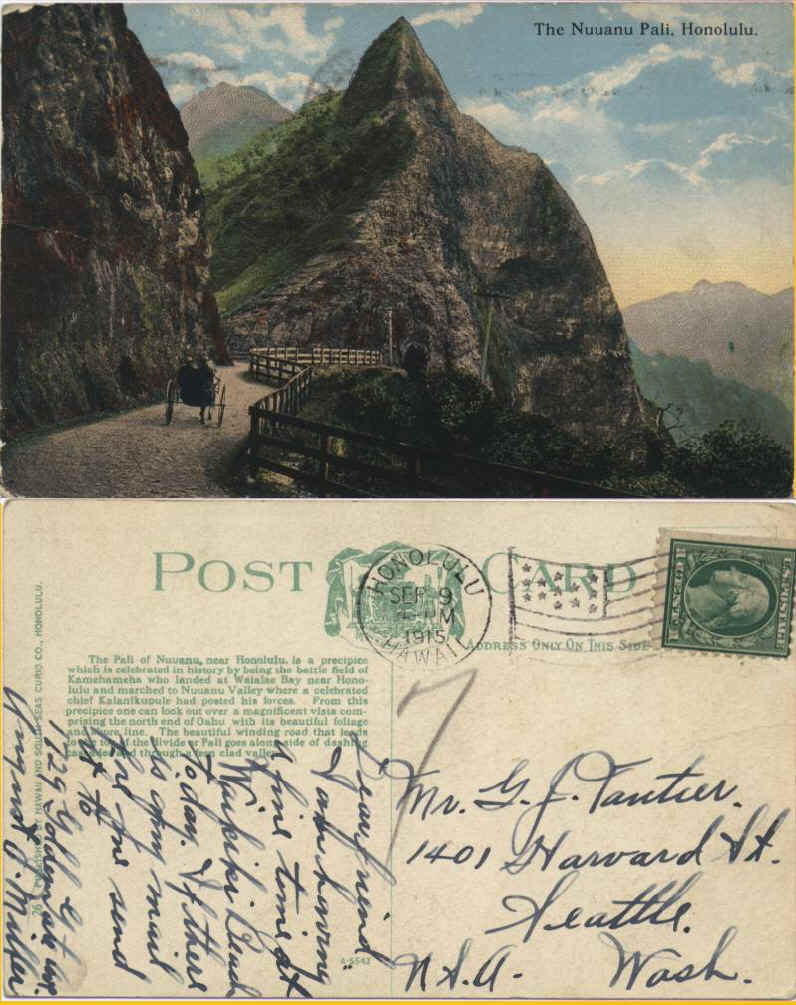 The Nuuanu Pali, Honolulu.
POST CARD
HONOLULU
SEP 9
1915
HAWAII
ADDRESS ONLY ON THIS SIDE
The Pali of Nuuanu, near Honolulu, is a precipice
which is celebrated in history by being the battle field of
Kamehameha who landed at Waialae Bay near Hono-
lulu and marched to Nuuanu Valley where a celebrated
chief Kalanikupule had posted his forces. From this
precipice one can look out over a magnificent vista com-
prising the north end of Oahu with its beautiful foliage
and shore line. The beautiful winding road that leads
to the top of the divide at Pali goes along side of dashing
cascades and through a fern clad valley.
HAWAII AND SOUTH SEAS CURIO CO., HONOLULU.
Dear friend
I am having
a fine time at
Waikiki Beach
today. If there
is any mail
for me send
it to
1629 Golden Gt
J. Miller
A-5542
7
Mr. G. J. Tautier.
1401 Harvard St.
Seattle.
N.S.A. Wash.